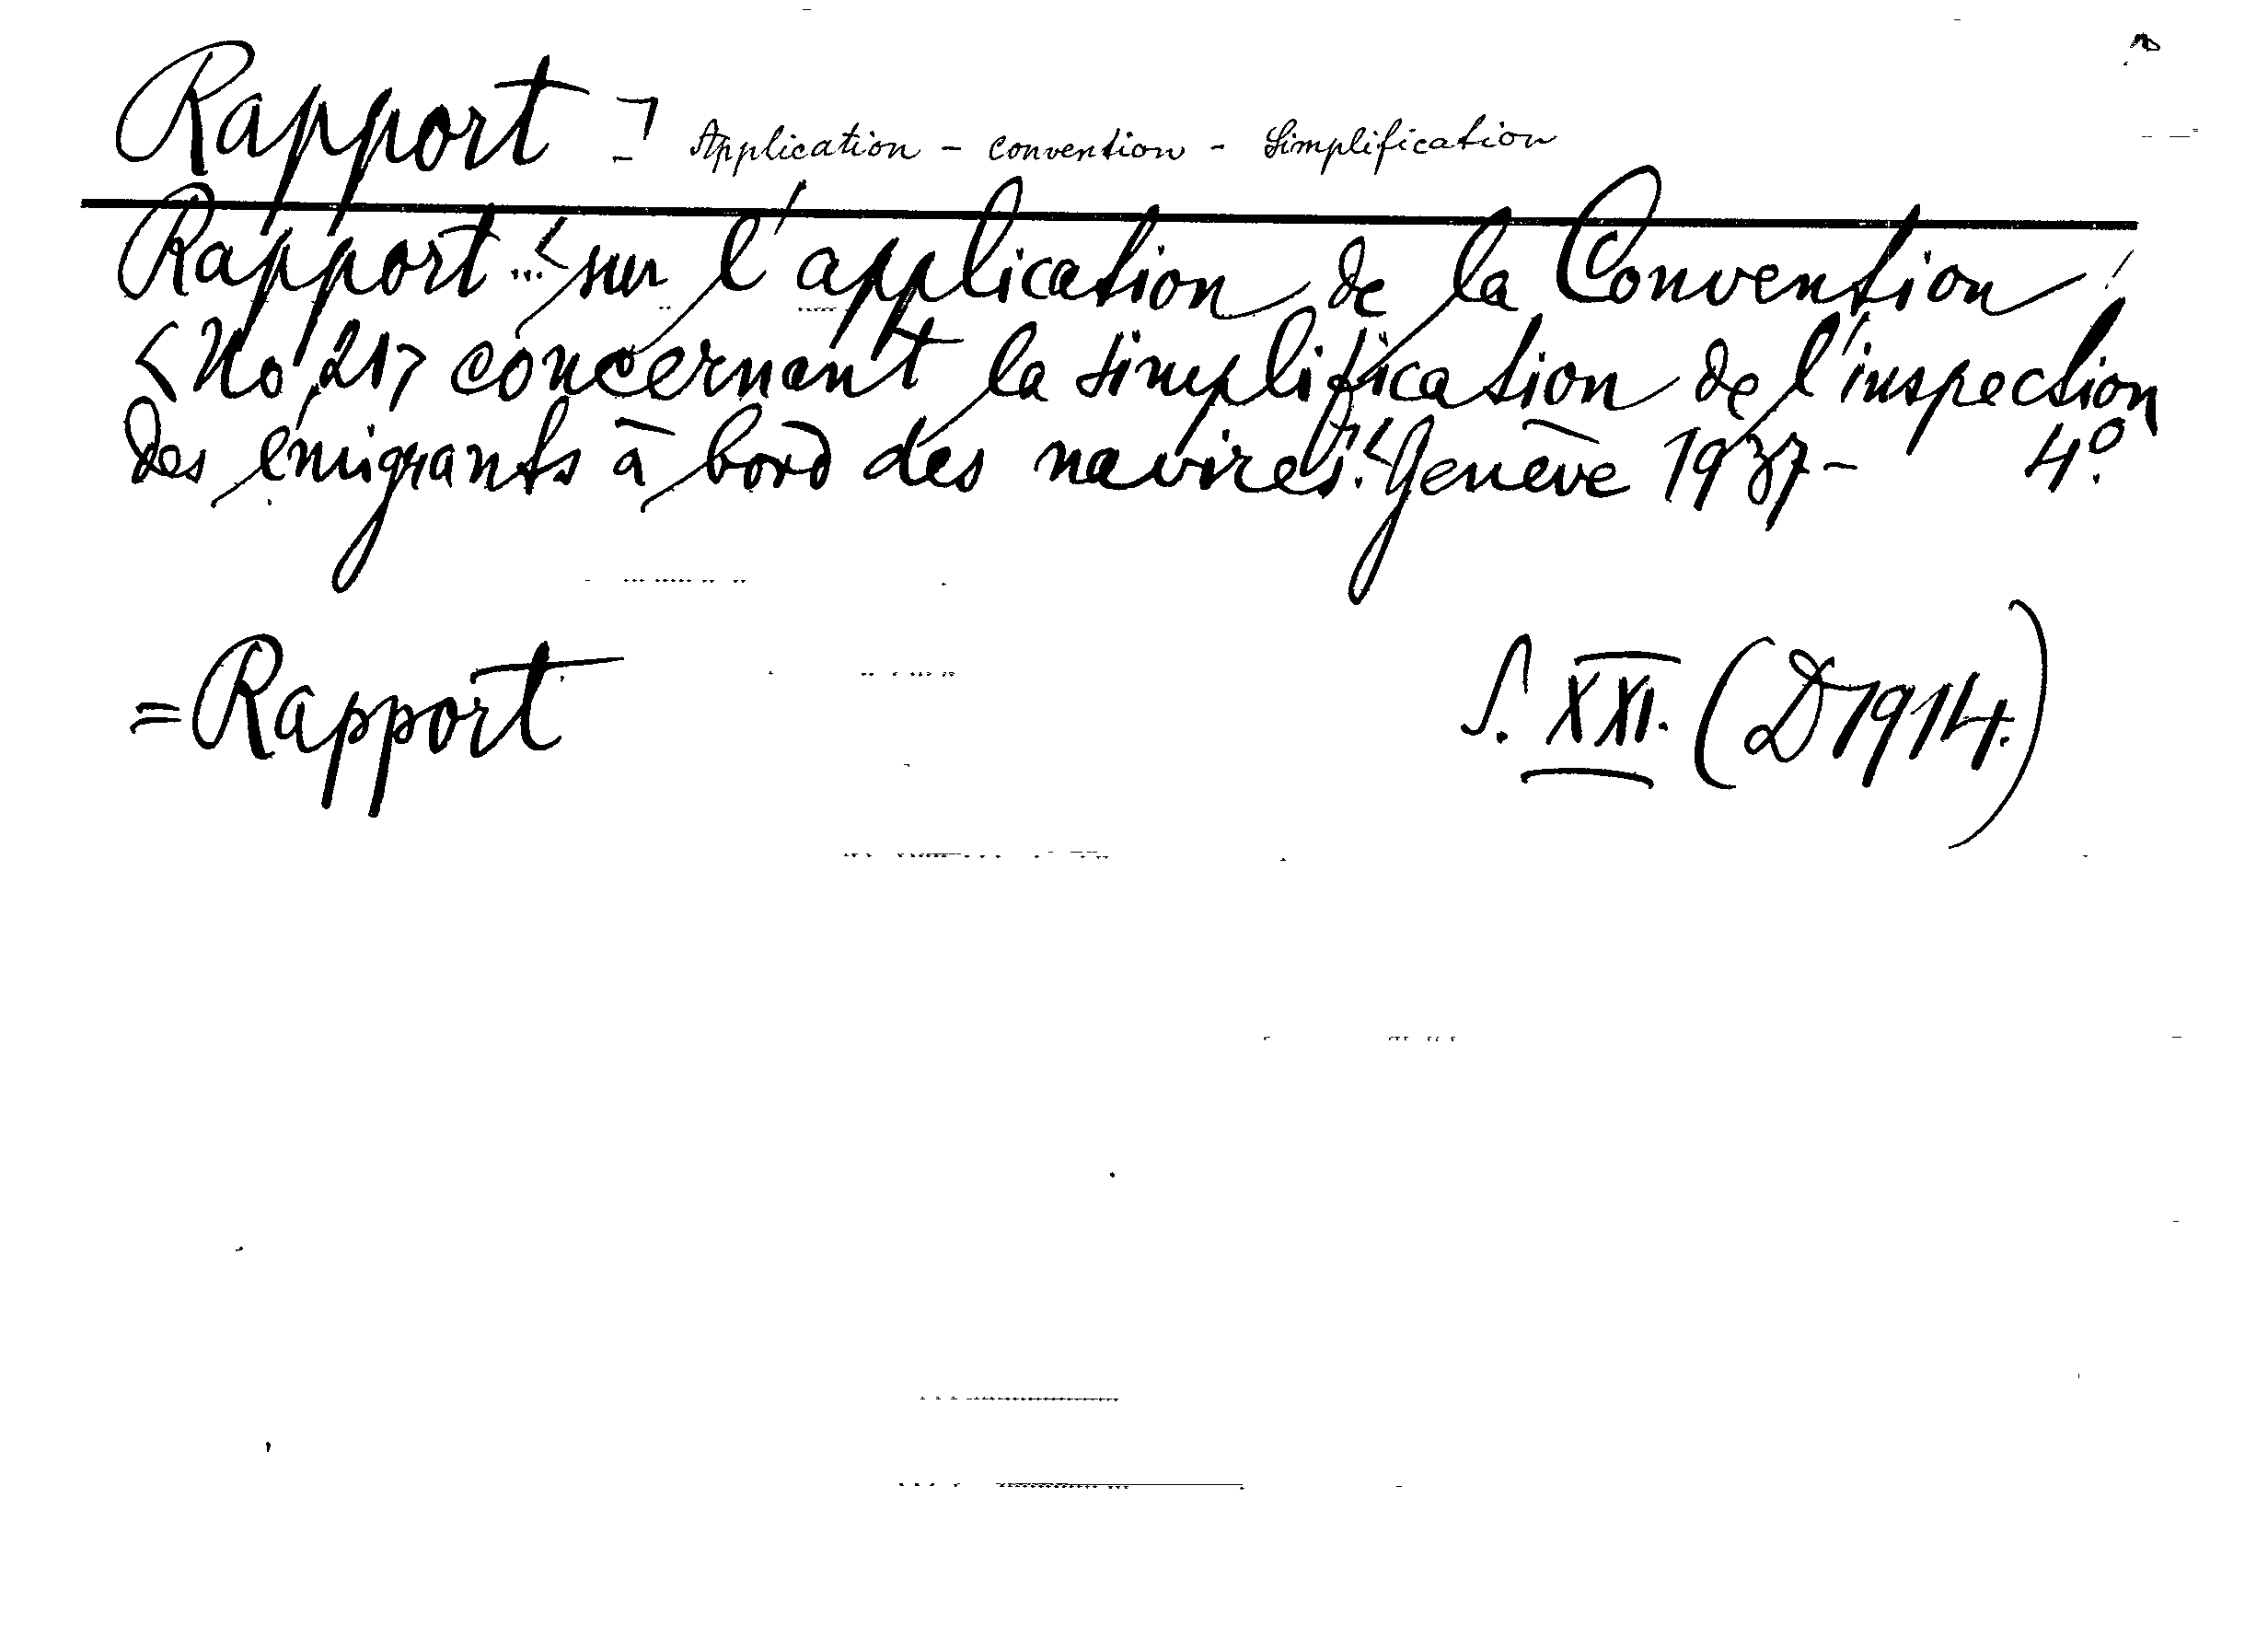 Rapport - Application - convention - Simplification
Rapport ... <sur l'application de la Convention
<No 21> concernant la simplification de l'inspection
des émigrants à bord des navires.< Genève 1937- 4o.
=Rapport S. XXI. (D1914.)